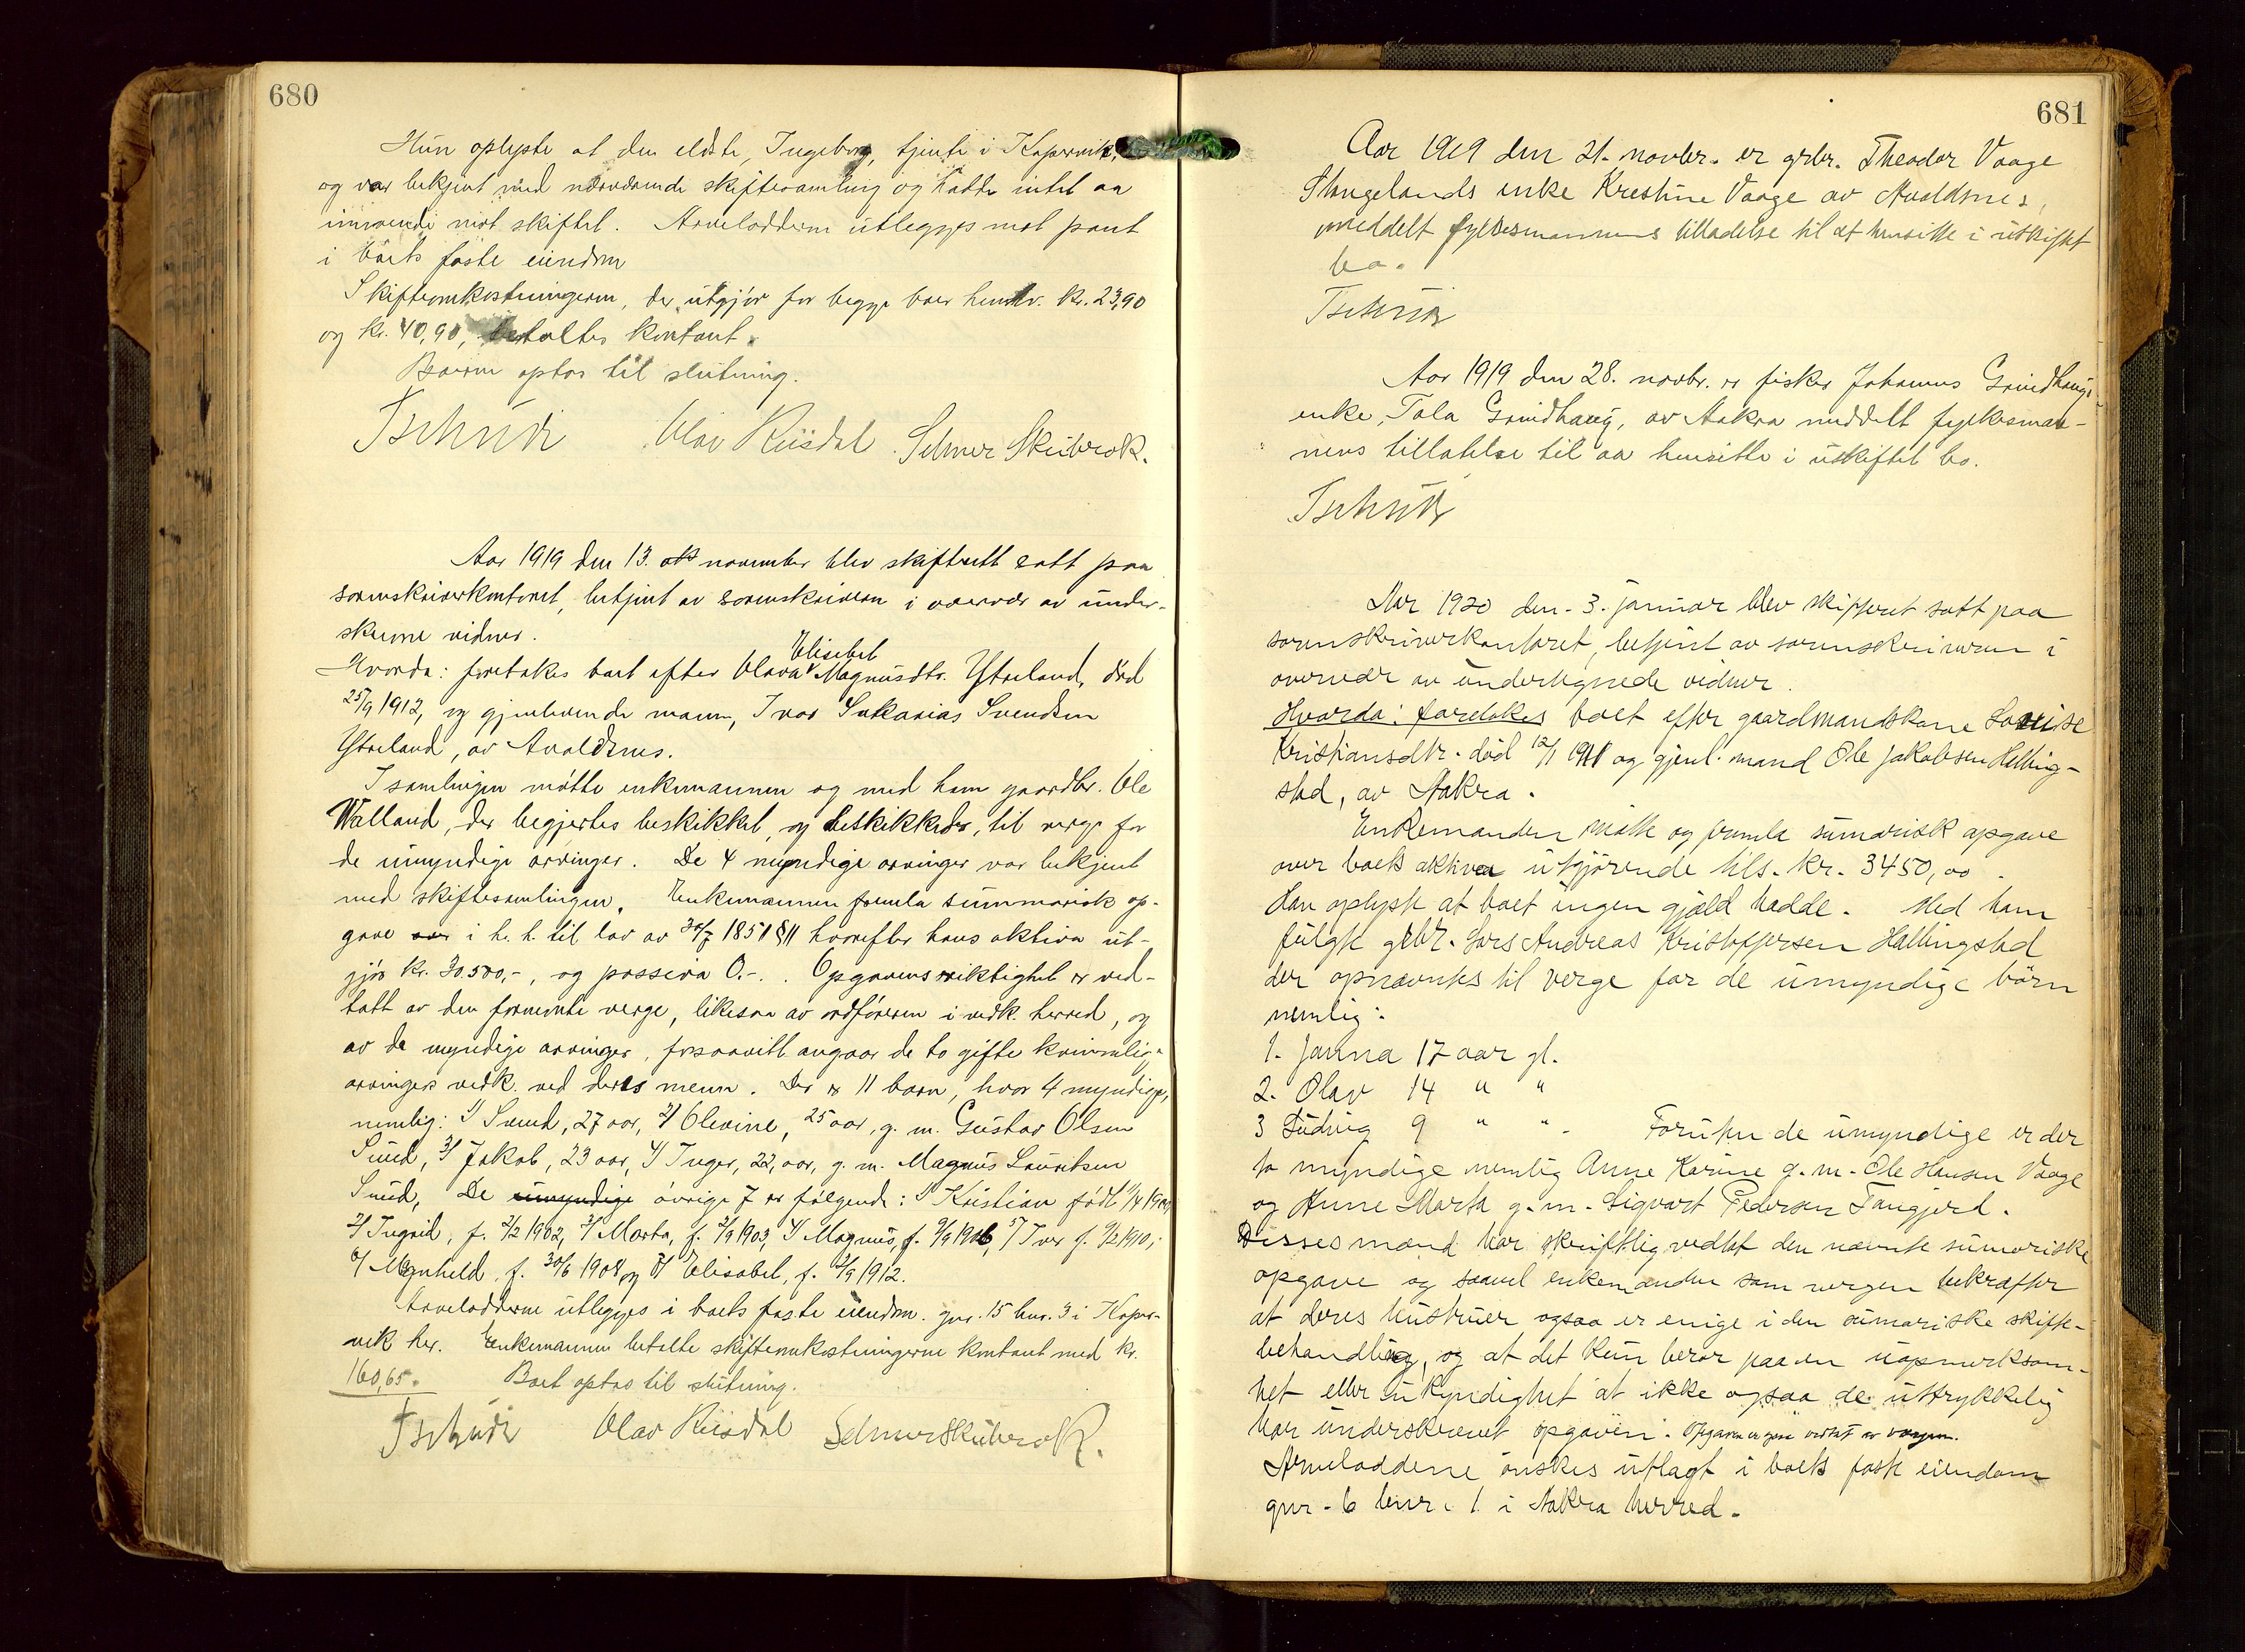 680
Hun oplyste at den eldste, Ingeborg, tjente i Kopervik,
og var bekjent med nærværende skiftesamling og hadde intet aa
innvende mot skiftet. Arvelodderne utlegges mot pant
i boets faste eiendom
Skifteomkostningerne, der utgjør for begge boer hensv. kr. 23,90
og kr. 40,90, betaltes kontant.
Boerne optas til slutning.
Tschudi Olav Riisdal Selmer Skibrok.
Aar 1919 den 13. november blev skifterett satt paa
sorenskriverkontoret, betjent av sorenskriveren i overvær av under-
skrevne vidner.
Elisabet
Hvorda: foretokes boet efter Olava Magnusdtr. Ytreland, død
25/9 1912, og gjenlevende mann, Ivar Sakarias Svendsen
Ytreland, av Avaldsnes.
I samlingen møtte enkemannen og med ham gaardbr. Ole
Walland, der begjertes beskikket, og beskikkedes, til verge for
de umyndige arvinger. De 4 myndige arvinger var bekjent
med skiftesamlingen. Enkemannen fremla summarisk op-
gave i h. h. til lov av 30/7 1851 § 11 hvorefter hans aktiva ut-
gjør kr. 30.500,-, og passiva 0.-. Opgavens riktighet er ved-
tatt av den fornevnte verge, likesaa av ordføreren i vedk. herred, og
av de myndige arvinger, forsaavitt angaar de to gifte kvinnelige
arvinger vedk. ved deres menn. Der er 11 barn, hvor 4 myndige,
nemlig: 1/ Svend, 27 aar, 2/ Olevine, 25 aar, g. m. Gustav Olsen
Sund, 3/ Jakob, 23 aar, 4/ Inger, 22, aar, g. m. Magnus Lauritsen
Sund, De umyndige øvrige 7 er følgende: 1/ Kristian født 1/4 1900,
2/ Ingrid, f. 2/2 1902, 3/ Marta, f. 2/9 1903, 4/ Magnus, f. 9/9 1906, 5/ Iver f. 9/2 1910,
6/ Magnhild, f. 30/6 1908 og 7/ Elisabet, f. 2/9 1912.
Arvelodderne utlegges i boets faste eiendom. gnr. 15 bnr. 3 i Koper-
vik her. Enkemannen betalte skifteomkostningerne kontant med kr.
160,65. Boet optas til slutning.
Tschudi Olav Riisdal Selmer Skibrok.
681
Aar 1919 den 21. novbr. er grbr. Theodor Vaage
Stangelands enke Krestine Vaage av Avaldsnes,
meddelt fylkesmannens tilladelse til at hensitte i uskiftet
bo.
Tschudi
Aar 1919 den 28. novbr. er fisker Johannes Grindhaugs
enke, Tala Grindhaug, av Aakra meddelt fylkesman-
nens tillatelse til aa hensitte i uskiftet bo.
Tschudi
Aar 1920 den 3. januar blev skifteret satt paa
sorenskriverkontoret, betjent av sorenskriveren i
overvær av undertegnede vidner.
Hvorda: foretokes boet efter gaardmandskone Lovise
Kristiansdtr. død 12/1 1911 og gjenl. mand Ole Jakobsen Helling-
stad, av Aakra.
Enkemanden møtte og fremla sumarisk opgave
over boets aktiva utgjørende tils. kr. 3450,00.
Han oplyste at boet ingen gjæld hadde. Med ham
fulgte grbr. Lars Andreas Kristoffersen Hallingstad
der opnævntes til verge for de umyndige börn
nemlig:
1. Janna 17 aar gl.
2. Olav 14 " "
3 Ludvig 9 " ". Foruten de umyndige er der
to myndige nemlig Anne Karine g. m. Ole Hansen Vaage
og Anne Marta g. m. Sigvart Pedersen Tangjerd.
Disses mænd har skriftlig vedtat den nævnte sumariske
opgave og saavel enkemanden som vergen bekræfter
at deres hustruer ogsaa er enige i den sumariske skifte-
behandling, og at det kun beror paa en uopmerksom-
het eller ukyndighet at ikke ogsaa de uttrykkelig
har underskrevet opgaven. Opgaven er ogsaa vedtat av vergen.
Arveloddene önskes utlagt i boets faste eiendom
gnr. 6 bnr. 1. i Aakra herred.